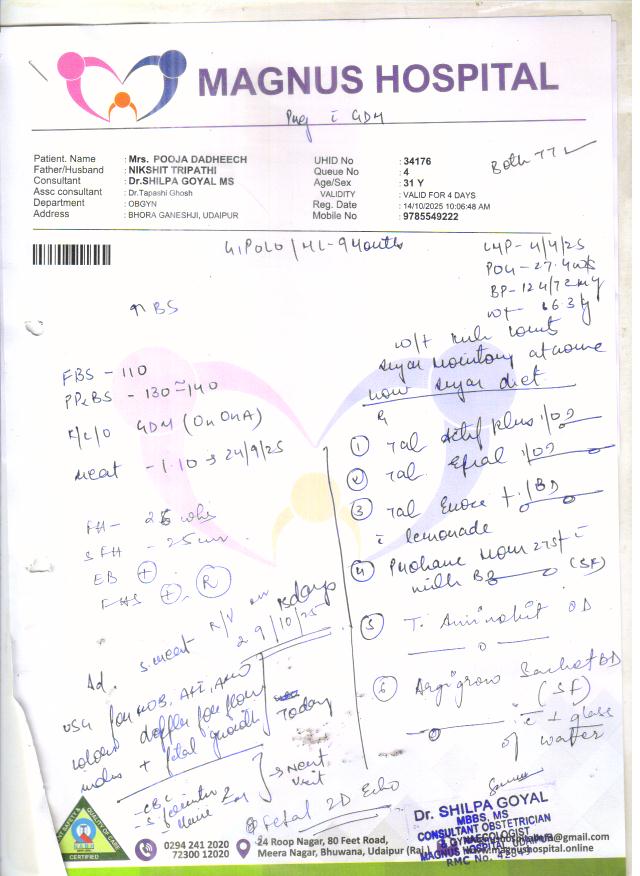 MAGNUS HOSPITAL
Preg c̄ GDM
Patient. Name : Mrs. POOJA DADHEECH
Father/Husband : NIKSHIT TRIPATHI
Consultant : Dr.SHILPA GOYAL MS
Assc consultant : Dr.Tapashi Ghosh
Department : OBGYN
Address : BHORA GANESHJI, UDAIPUR
UHID No : 34176
Queue No : 4
Age/Sex : 31 Y
VALIDITY : VALID FOR 4 DAYS
Reg. Date : 14/10/2025 10:06:48 AM
Mobile No : 9785549222
Both TT ✓
G1P0L0 / ML - 9 Months
LMP - 4/4/25
POG - 27.4 wks
BP - 124/72 mg
wt - 66.3 kg
↑ BS
FBS - 110
PP2BS - 130 - 140
K/C/O GDM (On OHA)
- 1.10 → 24/9/25
FH - 26 wks
SFH - 25 cm
EB +
FHS + R
sugar monitoring at home
low sugar diet
R
1 Tab Actif plus 1 OD
2 Tab 1 OD
3 Tab + 1 BD
c̄ lemonade
4 Prohance Mom 2TSF c̄
milk BD (SF)
5 T. OD
6 Argigrow Sachet BD
(SF)
c̄ 1 glass
of water
R/V on 15 days
29/10/25
Ad
USG for AFI,
colour doppler for flow
index + fetal growth
Today
- CBC
- S. ferritin
- Urine
→ Next
visit
fetal 2D Echo
Dr. SHILPA GOYAL
MBBS, MS
CONSULTANT OBSTETRICIAN
& GYNAECOLOGIST
MAGNUS HOSPITAL, UDAIPUR
RMC No.
CERTIFIED
0294 241 2020
72300 12020
24 Roop Nagar, 80 Feet Road,
Meera Nagar, Bhuwana, Udaipur (Raj.)
@gmail.com
www.magnushospital.online